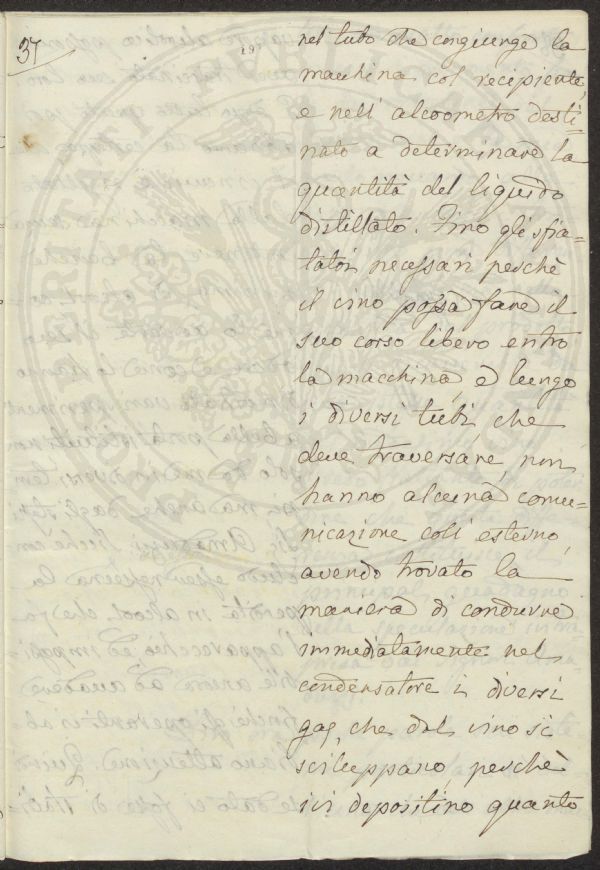 37
nel tubo che congiunge la
macchina col recipiente,
e nell' alcoometro desti=
nato a determinare la
quantità del liquido
distillato. Fino gli sfia=
tatoi necessari perchè
il vino possa fare il
suo corso libero entro
la macchina, e lungo
i diversi tubi che
deve traversare, non
hanno alcuna comu=
nicazione coll' esterno,
avendo trovato la
maniera di condurre
immediatamente nel
condensatore i diversi
gaz, che dal vino si
sviluppano, perchè
ivi depositino quanto